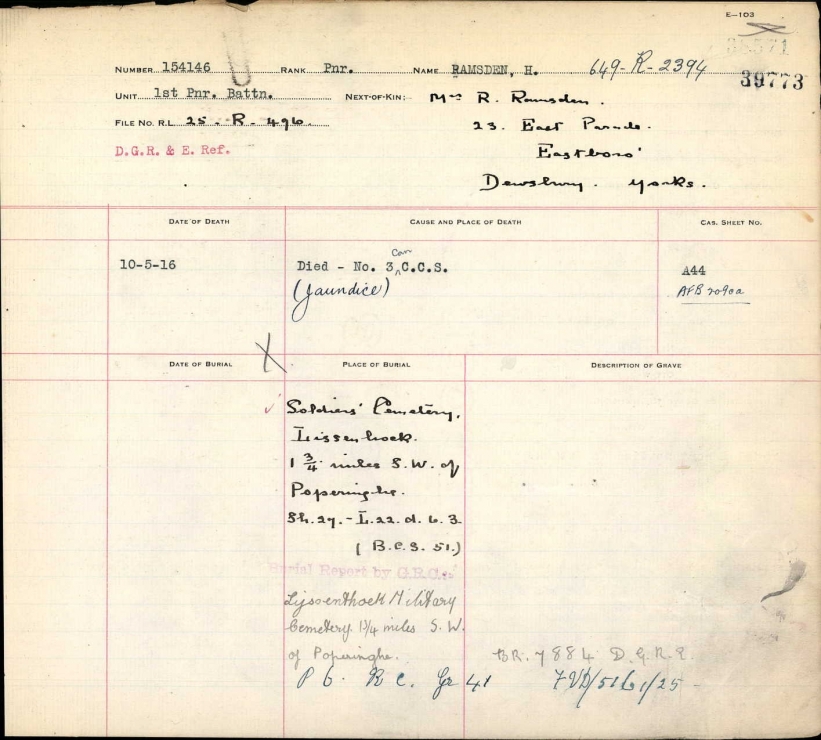 E—103
38571
39773
NUMBER 154146 RANK Pnr. NAME RAMSDEN, H. 649-R-2394
UNIT 1st Pnr. Battn. NEXT-OF-KIN: Mrs R. Ramsden.
FILE NO. R.L. 25-R-496 23. East Parade.
D.G.R. & E. Ref. Eastboro'
Dewsbury. Yorks.
DATE OF DEATH CAUSE AND PLACE OF DEATH CAS. SHEET NO.
Can
10-5-16 Died - No. 3 C.C.S. A44
(Jaundice) AFB 2090a
DATE OF BURIAL X PLACE OF BURIAL DESCRIPTION OF GRAVE
✓ Soldiers' Cemetery,
Lissenhoek.
1 3/4 miles S.W. of
Poperinghe.
Sh. 27. - L. 22. d. 6. 3.
(B.C.S. 51.)
Burial Report by G.R.C.:-
Lijssenthoek Military
Cemetery. 1 3/4 miles S.W.
of Poperinghe. BR. 7884 D.G.R.E.
P 6. R C. Gr 41